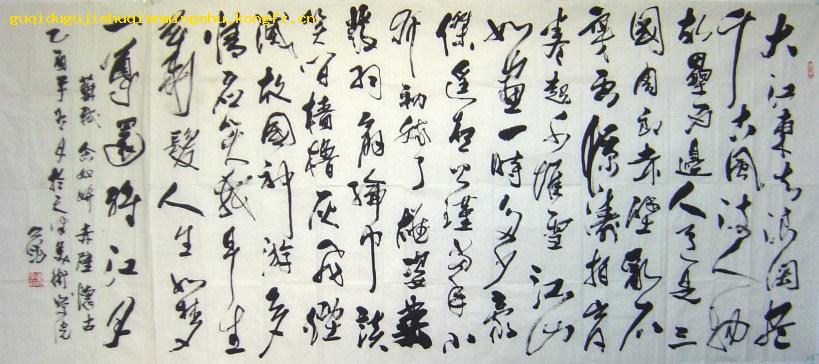 guqidugujishuqianmingshu.kongfz.cn
大江東去浪淘尽
千古風流人物
故壘西邊人道是三
國周郎赤壁亂石
穿惊濤拍岸
卷起千堆雪江山
如畫一時多少豪
傑遥想公瑾當年小
喬初嫁了雄姿英
發羽扇綸巾談
笑间檣櫓灰飛煙
滅故國神游多
情應笑我早生
華髮人生如夢
一尊還酹江月
蘇軾念奴嬌赤壁懷古
乙酉年冬月於天津美術學院